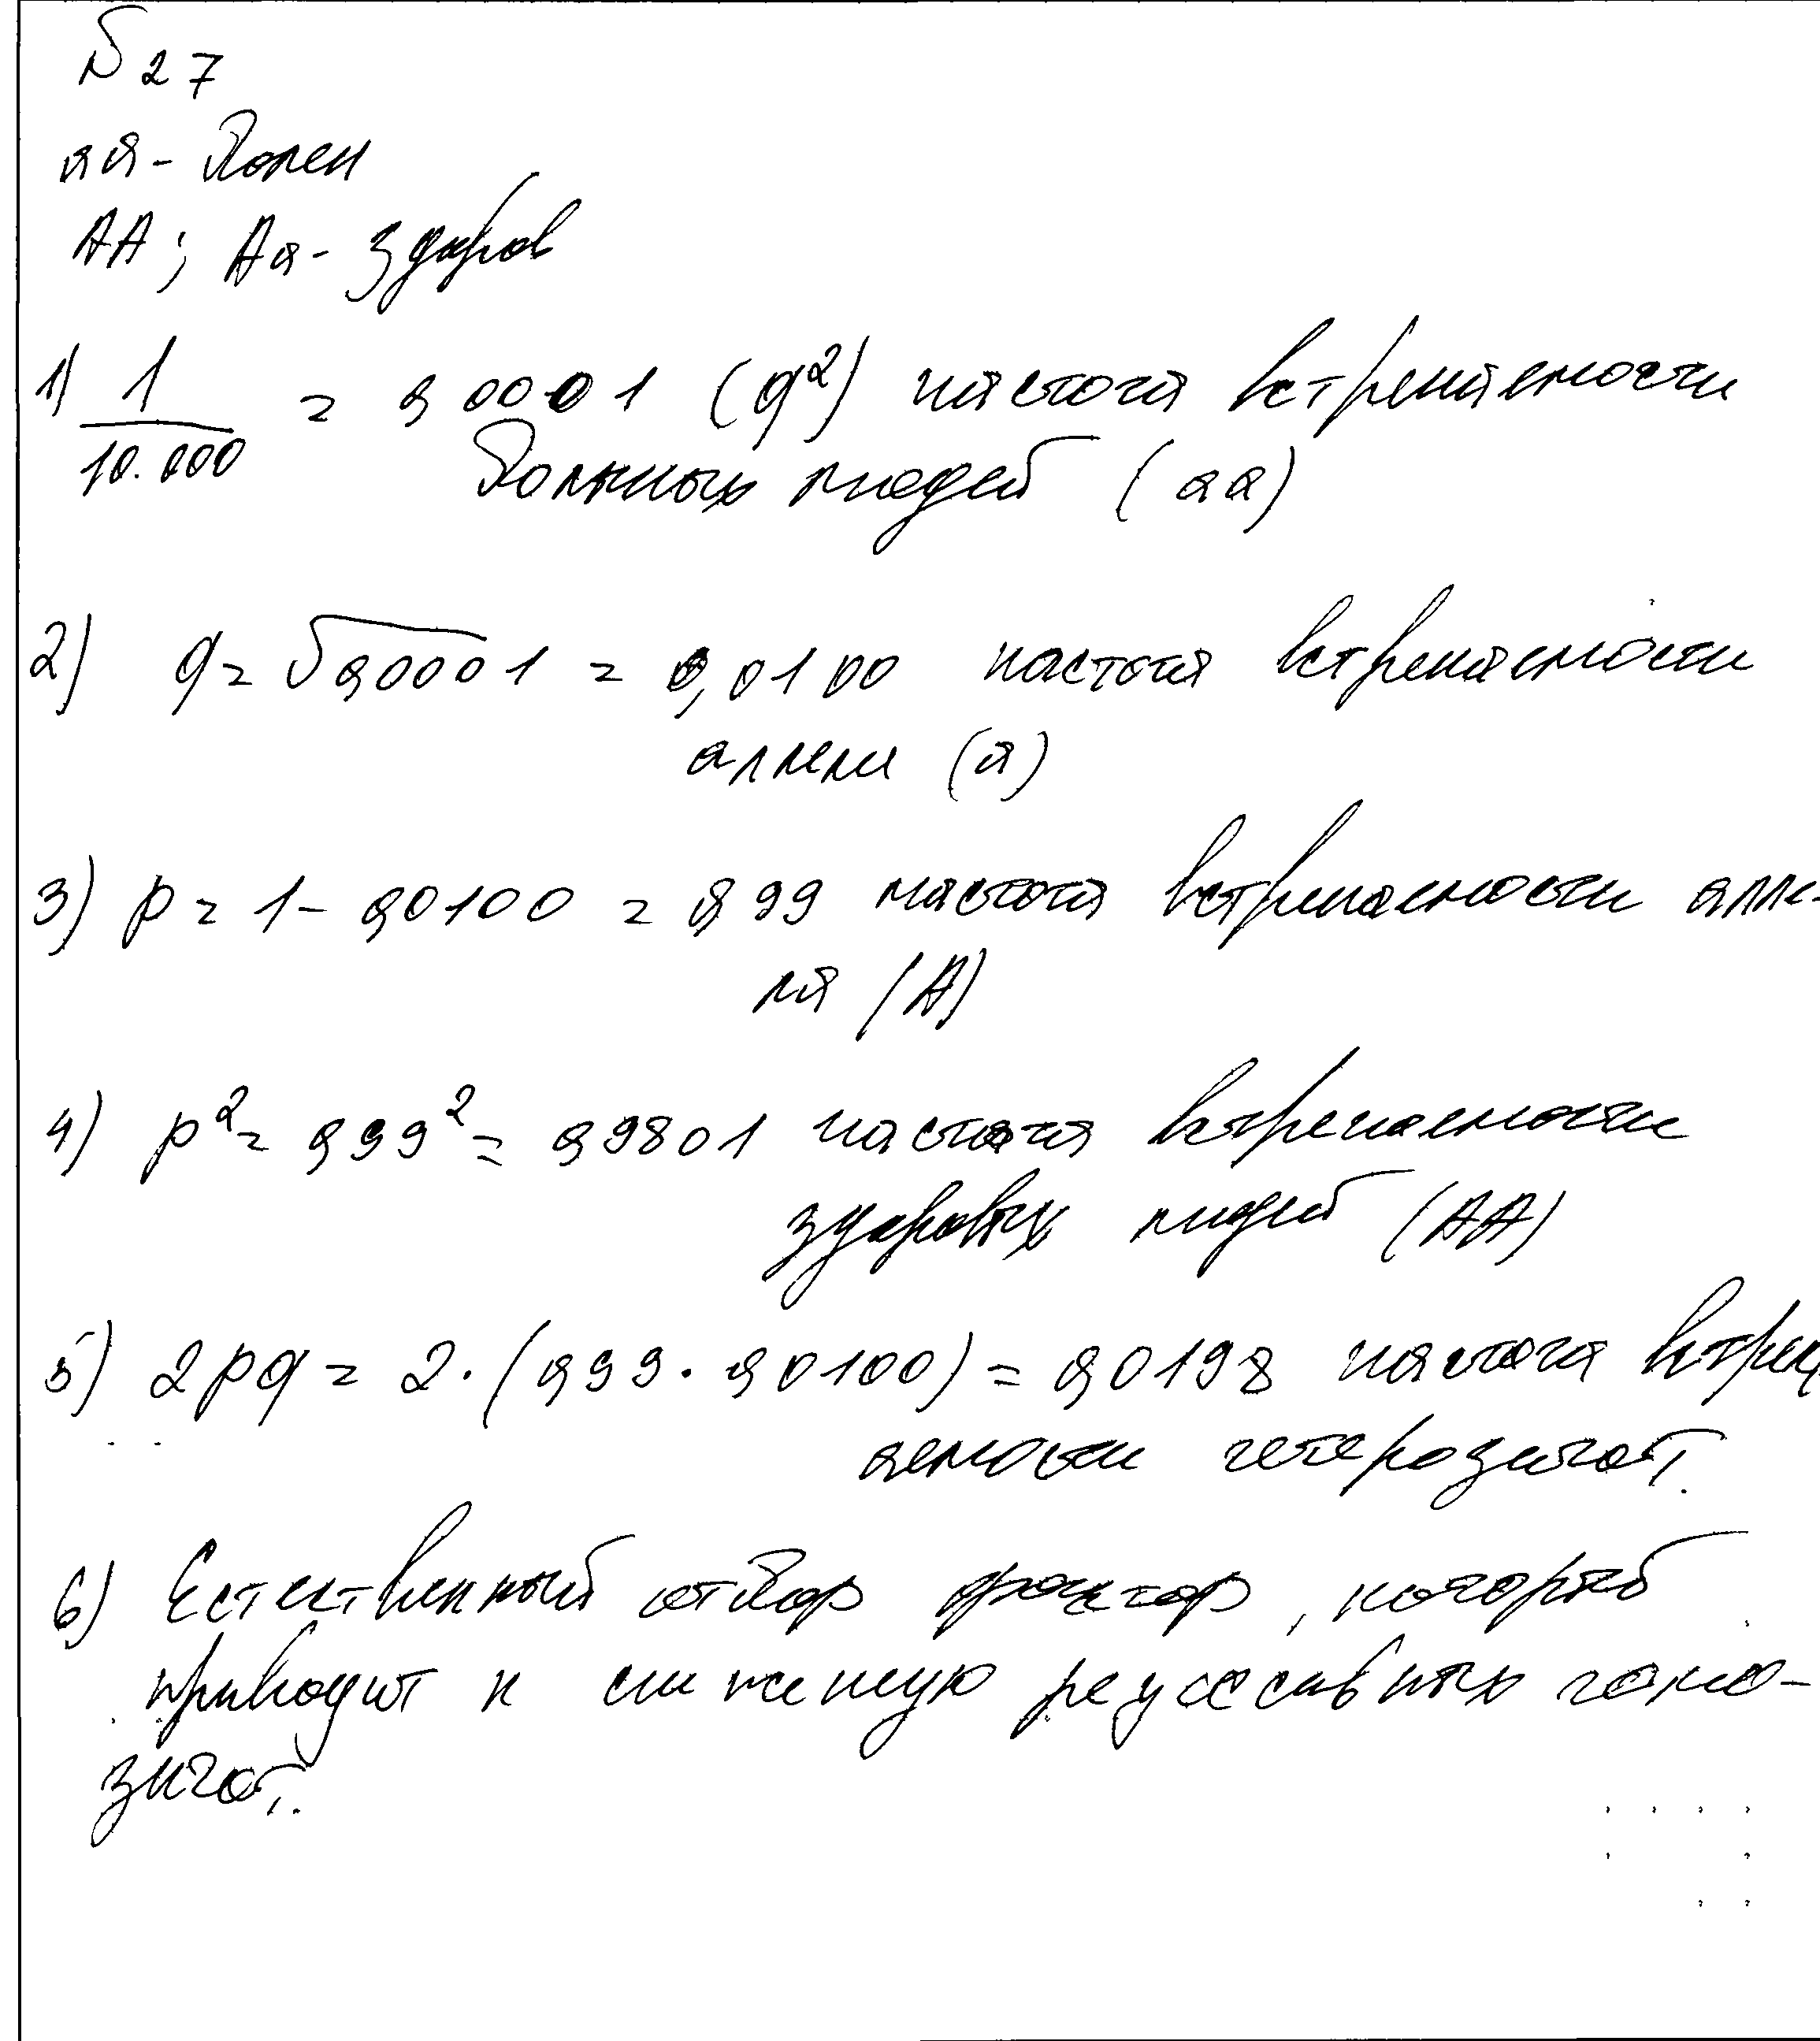 № 27
аа - болен
АА; Аа - здоров
1) 1/10.000 = 0,0001 (q²) частота встречаемости
больных людей (аа)
2) q = √0,0001 = 0,0100 частота встречаемости
аллели (а)
3) p = 1 - 0,0100 = 0,99 частота встречаемости алле-
ля (А)
4) p² = 0,99² = 0,9801 частота встречаемости
здоровых людей (АА)
5) 2pq = 2·(0,99·0,0100) = 0,0198 частота встреч
аемости гетерозигот.
6) Естественный отбор фактор, который
приводит к снижению рецессивных гомо-
зигот.